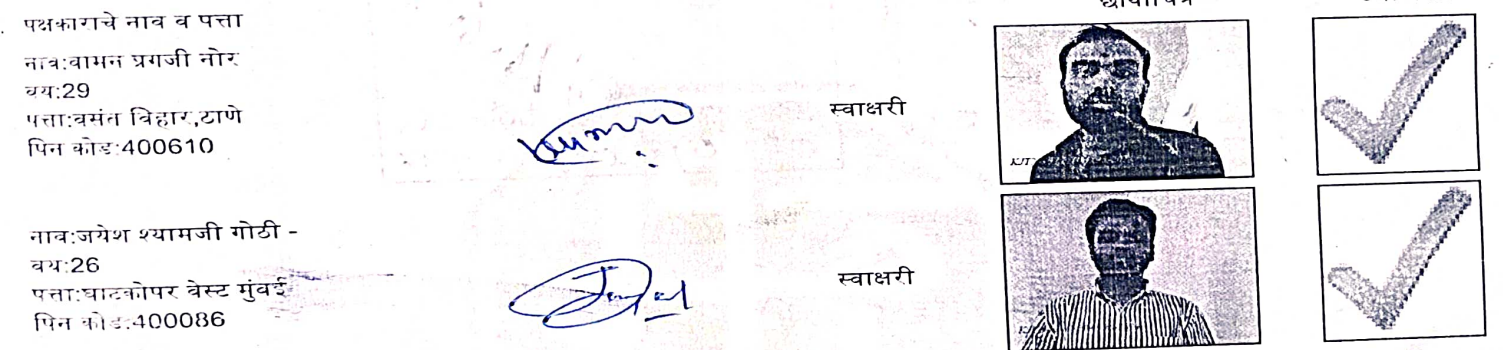 पक्षकाराचे नाव व पत्ता
छायाचित्र
नाव:वामन प्रगजी नोर
वय:29
पत्ता:वसंत विहार,ठाणे
पिन कोड:400610
स्वाक्षरी
नाव:जयेश श्यामजी गोठी -
वय:26
पत्ता:घाटकोपर वेस्ट मुंबई
पिन कोड:400086
स्वाक्षरी